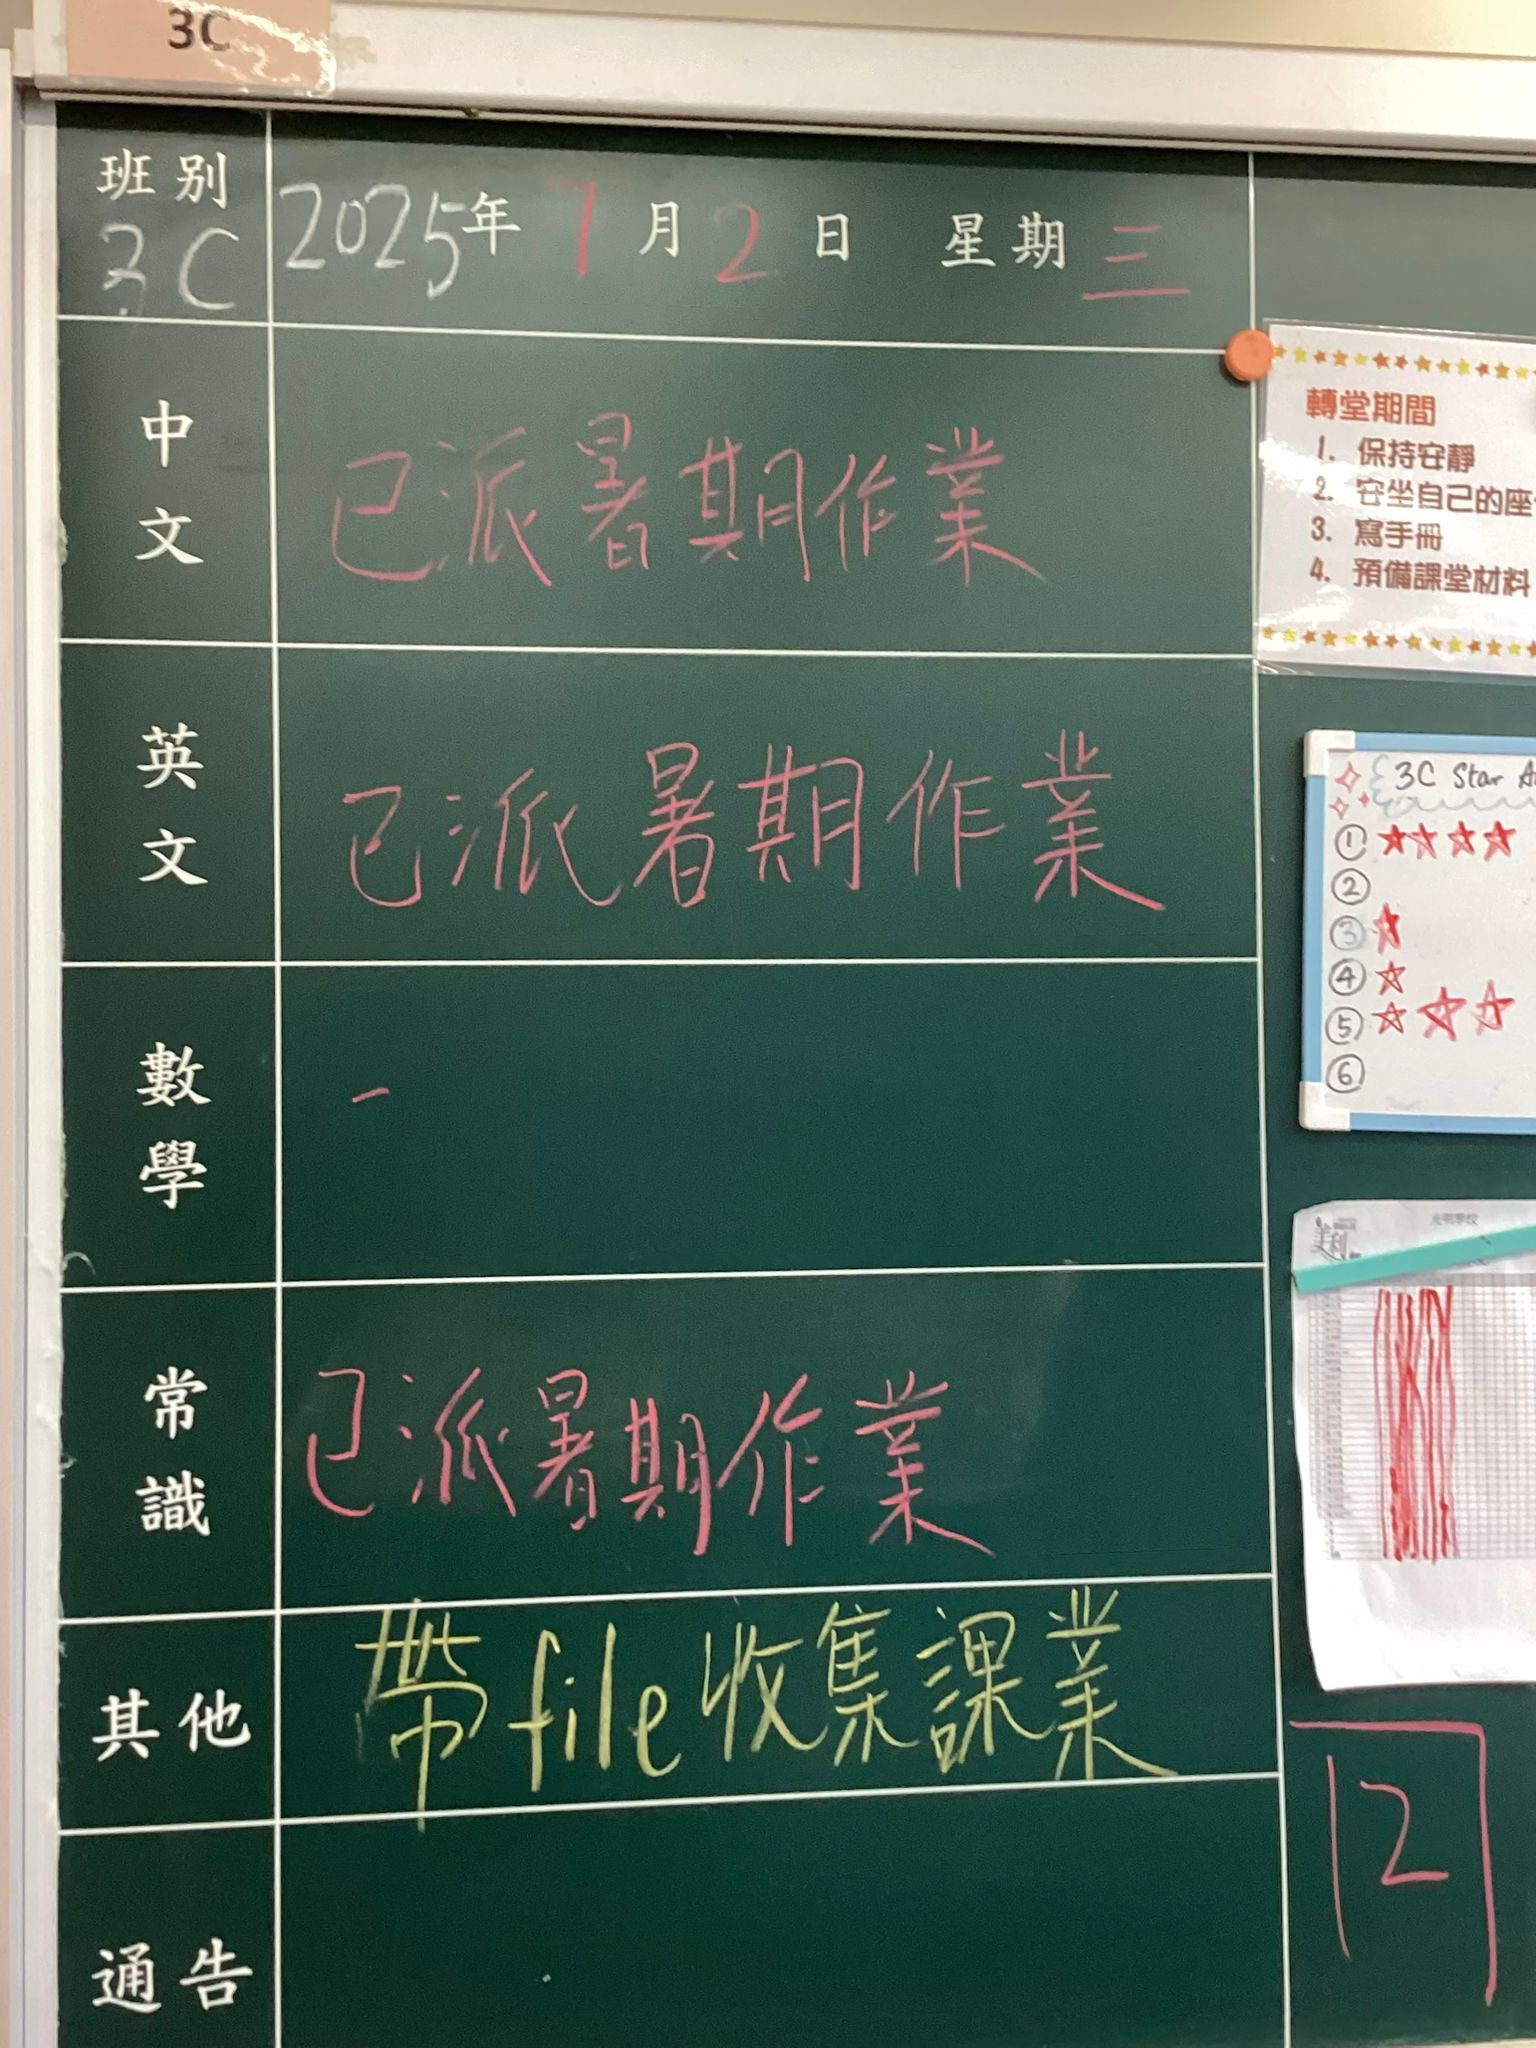 3C
班別 2025年 7月 2日 星期三
3C
中文 已派暑期作業
英文 已派暑期作業
數學 -
常識 已派暑期作業
其他 帶file收集課業
通告
轉堂期間
1. 保持安靜
2. 安坐自己的座
3. 寫手冊
4. 預備課堂材料
3C Star A
①
②
③
④
⑤
⑥
12